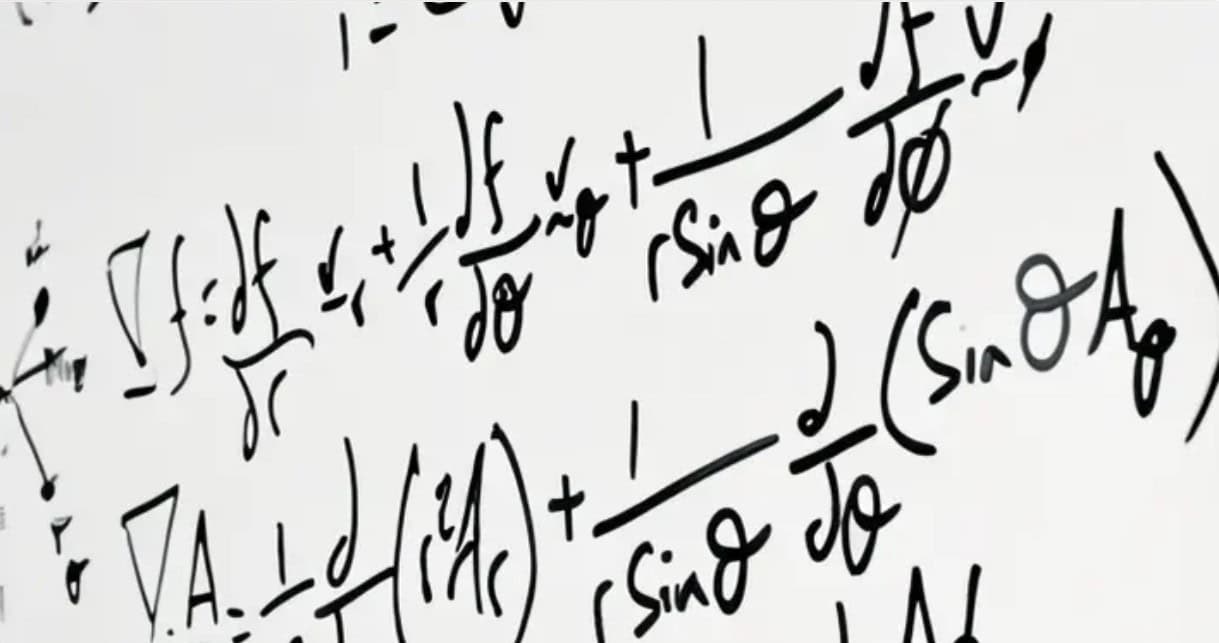 ∇f = ∂f/∂r v_r + 1/r ∂f/∂θ v_θ + 1/(r sin θ) ∂f/∂φ v_φ
∇·A = 1/ ∂/ (r²A_r) + 1/(r sin θ) ∂/∂θ (sin θ A_θ)